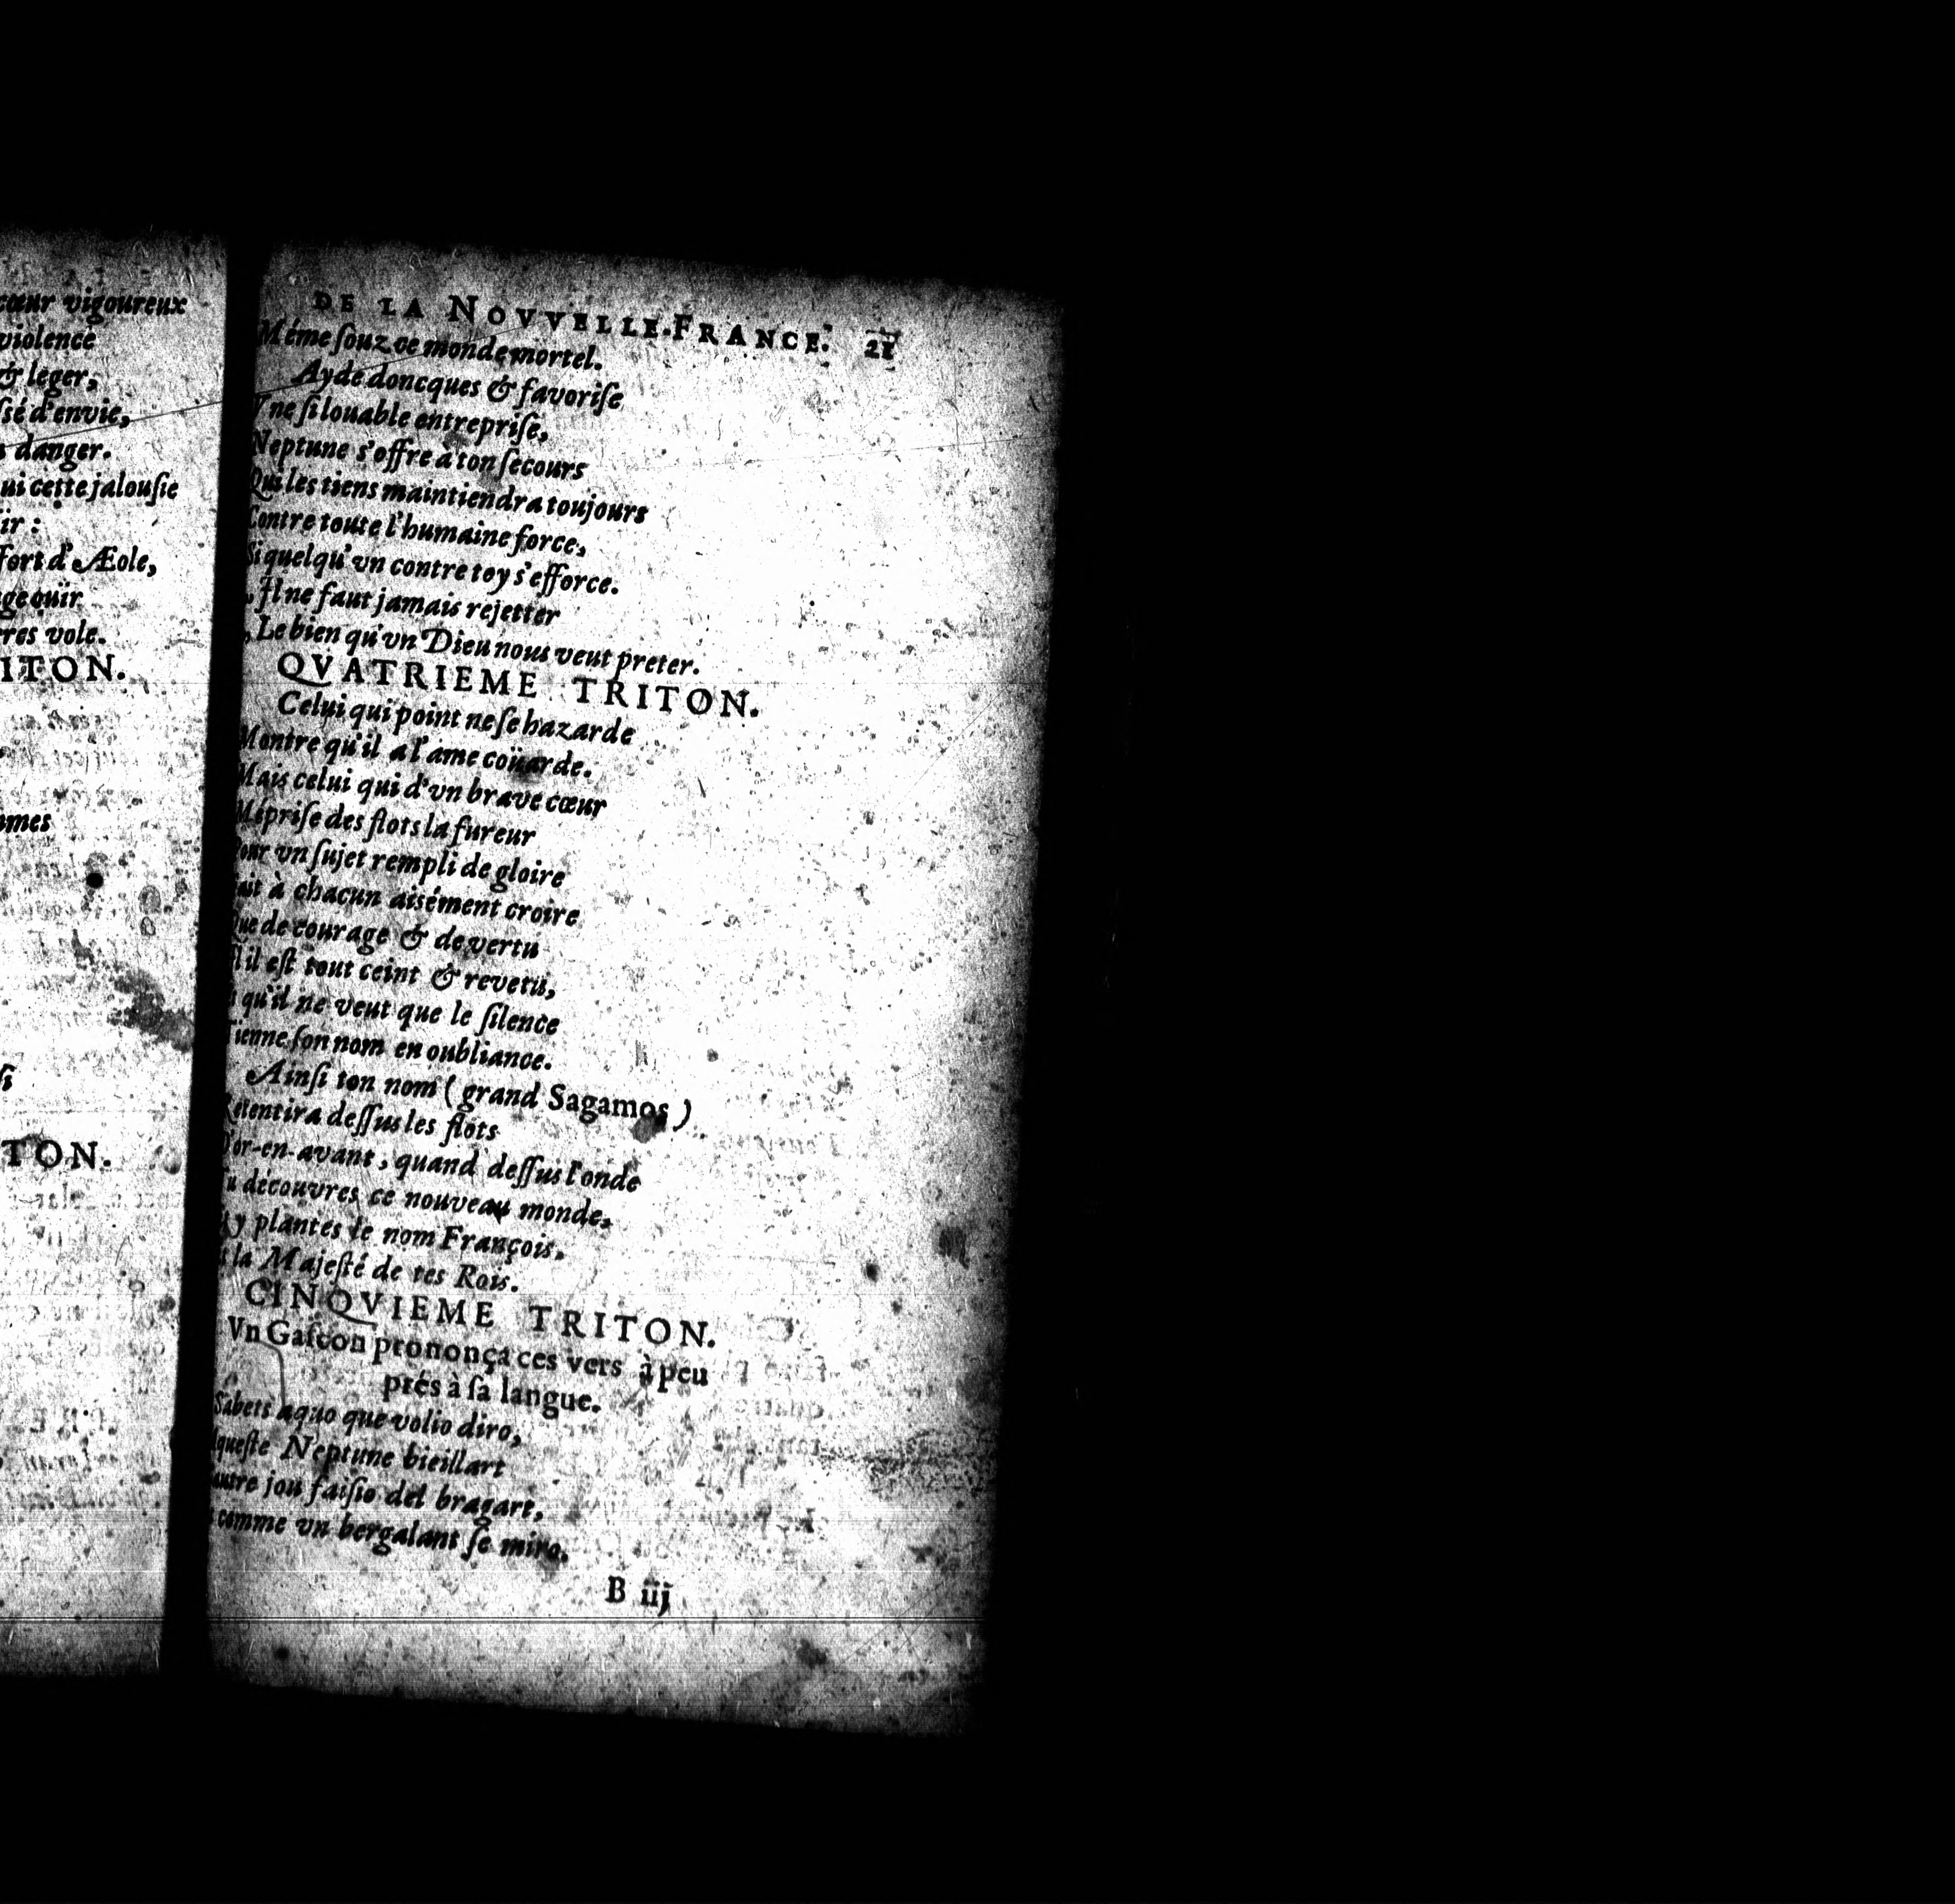 cœur vigoureux
violence
& leger,
ſsé d'envie,
danger.
ui cette jalouſie
ir :
fort d'Æole,
ge ouïr
res vole.
ITON.
mmes
ſi
TON.
DE LA NOVVELLE-FRANCE. 21
Méme ſouz ce monde mortel.
Ayde doncques & favoriſe
Vne ſi louable entrepriſe,
Neptune s'offre à ton ſecours
Qui les tiens maintiendra toujours
Contre toute l'humaine force,
Si quelqu'vn contre toy s'efforce.
,, Il ne faut jamais rejetter
,, Le bien qu'vn Dieu nous veut preter.
QVATRIEME TRITON.
Celui qui point ne ſe hazarde
Montre qu'il a l'ame coüarde.
Mais celui qui d'vn brave cœur
Mépriſe des flots la fureur
Pour vn ſujet rempli de gloire
Fait à chacun aisément croire
Que de courage & de vertu
Il eſt tout ceint & revetu,
qu'il ne veut que le ſilence
Tienne ſon nom en oubliance.
Ainſi ton nom ( grand Sagamos )
Retentira deſſus les flots
D'or-en-avant, quand deſſus l'onde
Tu découvres ce nouveau monde,
y plantes le nom François,
la Majeſté de tes Rois.
CINQVIEME TRITON.
Vn Gaſcon prononça ces vers à peu
prés à ſa langue.
Sabets aquo que volio diro,
Aqueſte Neptune bieillart
autre jou faiſio del bragart,
comme vn bergalant ſe miro.
B iij